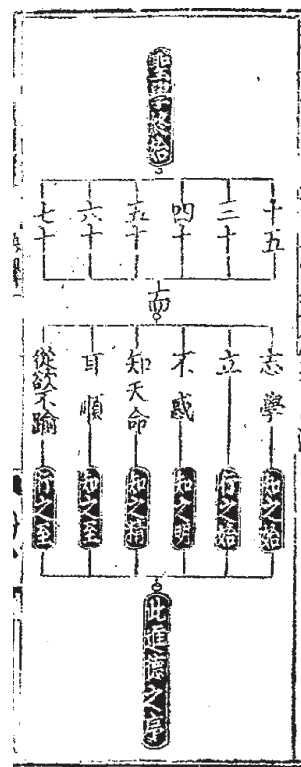 聖學終始
十五
三十
四十
五十
六十
七十
而
志學
立
不惑
知天命
耳順
從欲不踰
知之始
行之始
知之明
知之精
知之至
行之至
此進德之序